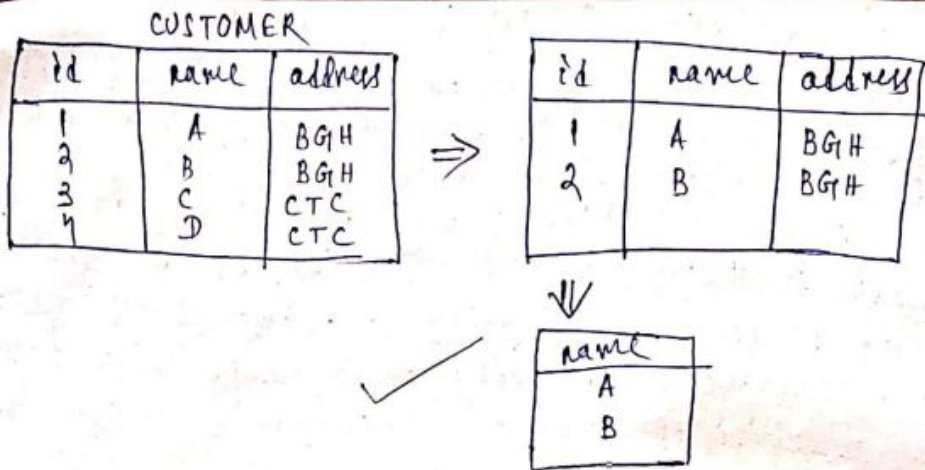 CUSTOMER
id name address
1 A BGH
2 B BGH
3 C CTC
4 D CTC
⇒
id name address
1 A BGH
2 B BGH
⇓
name
A
B